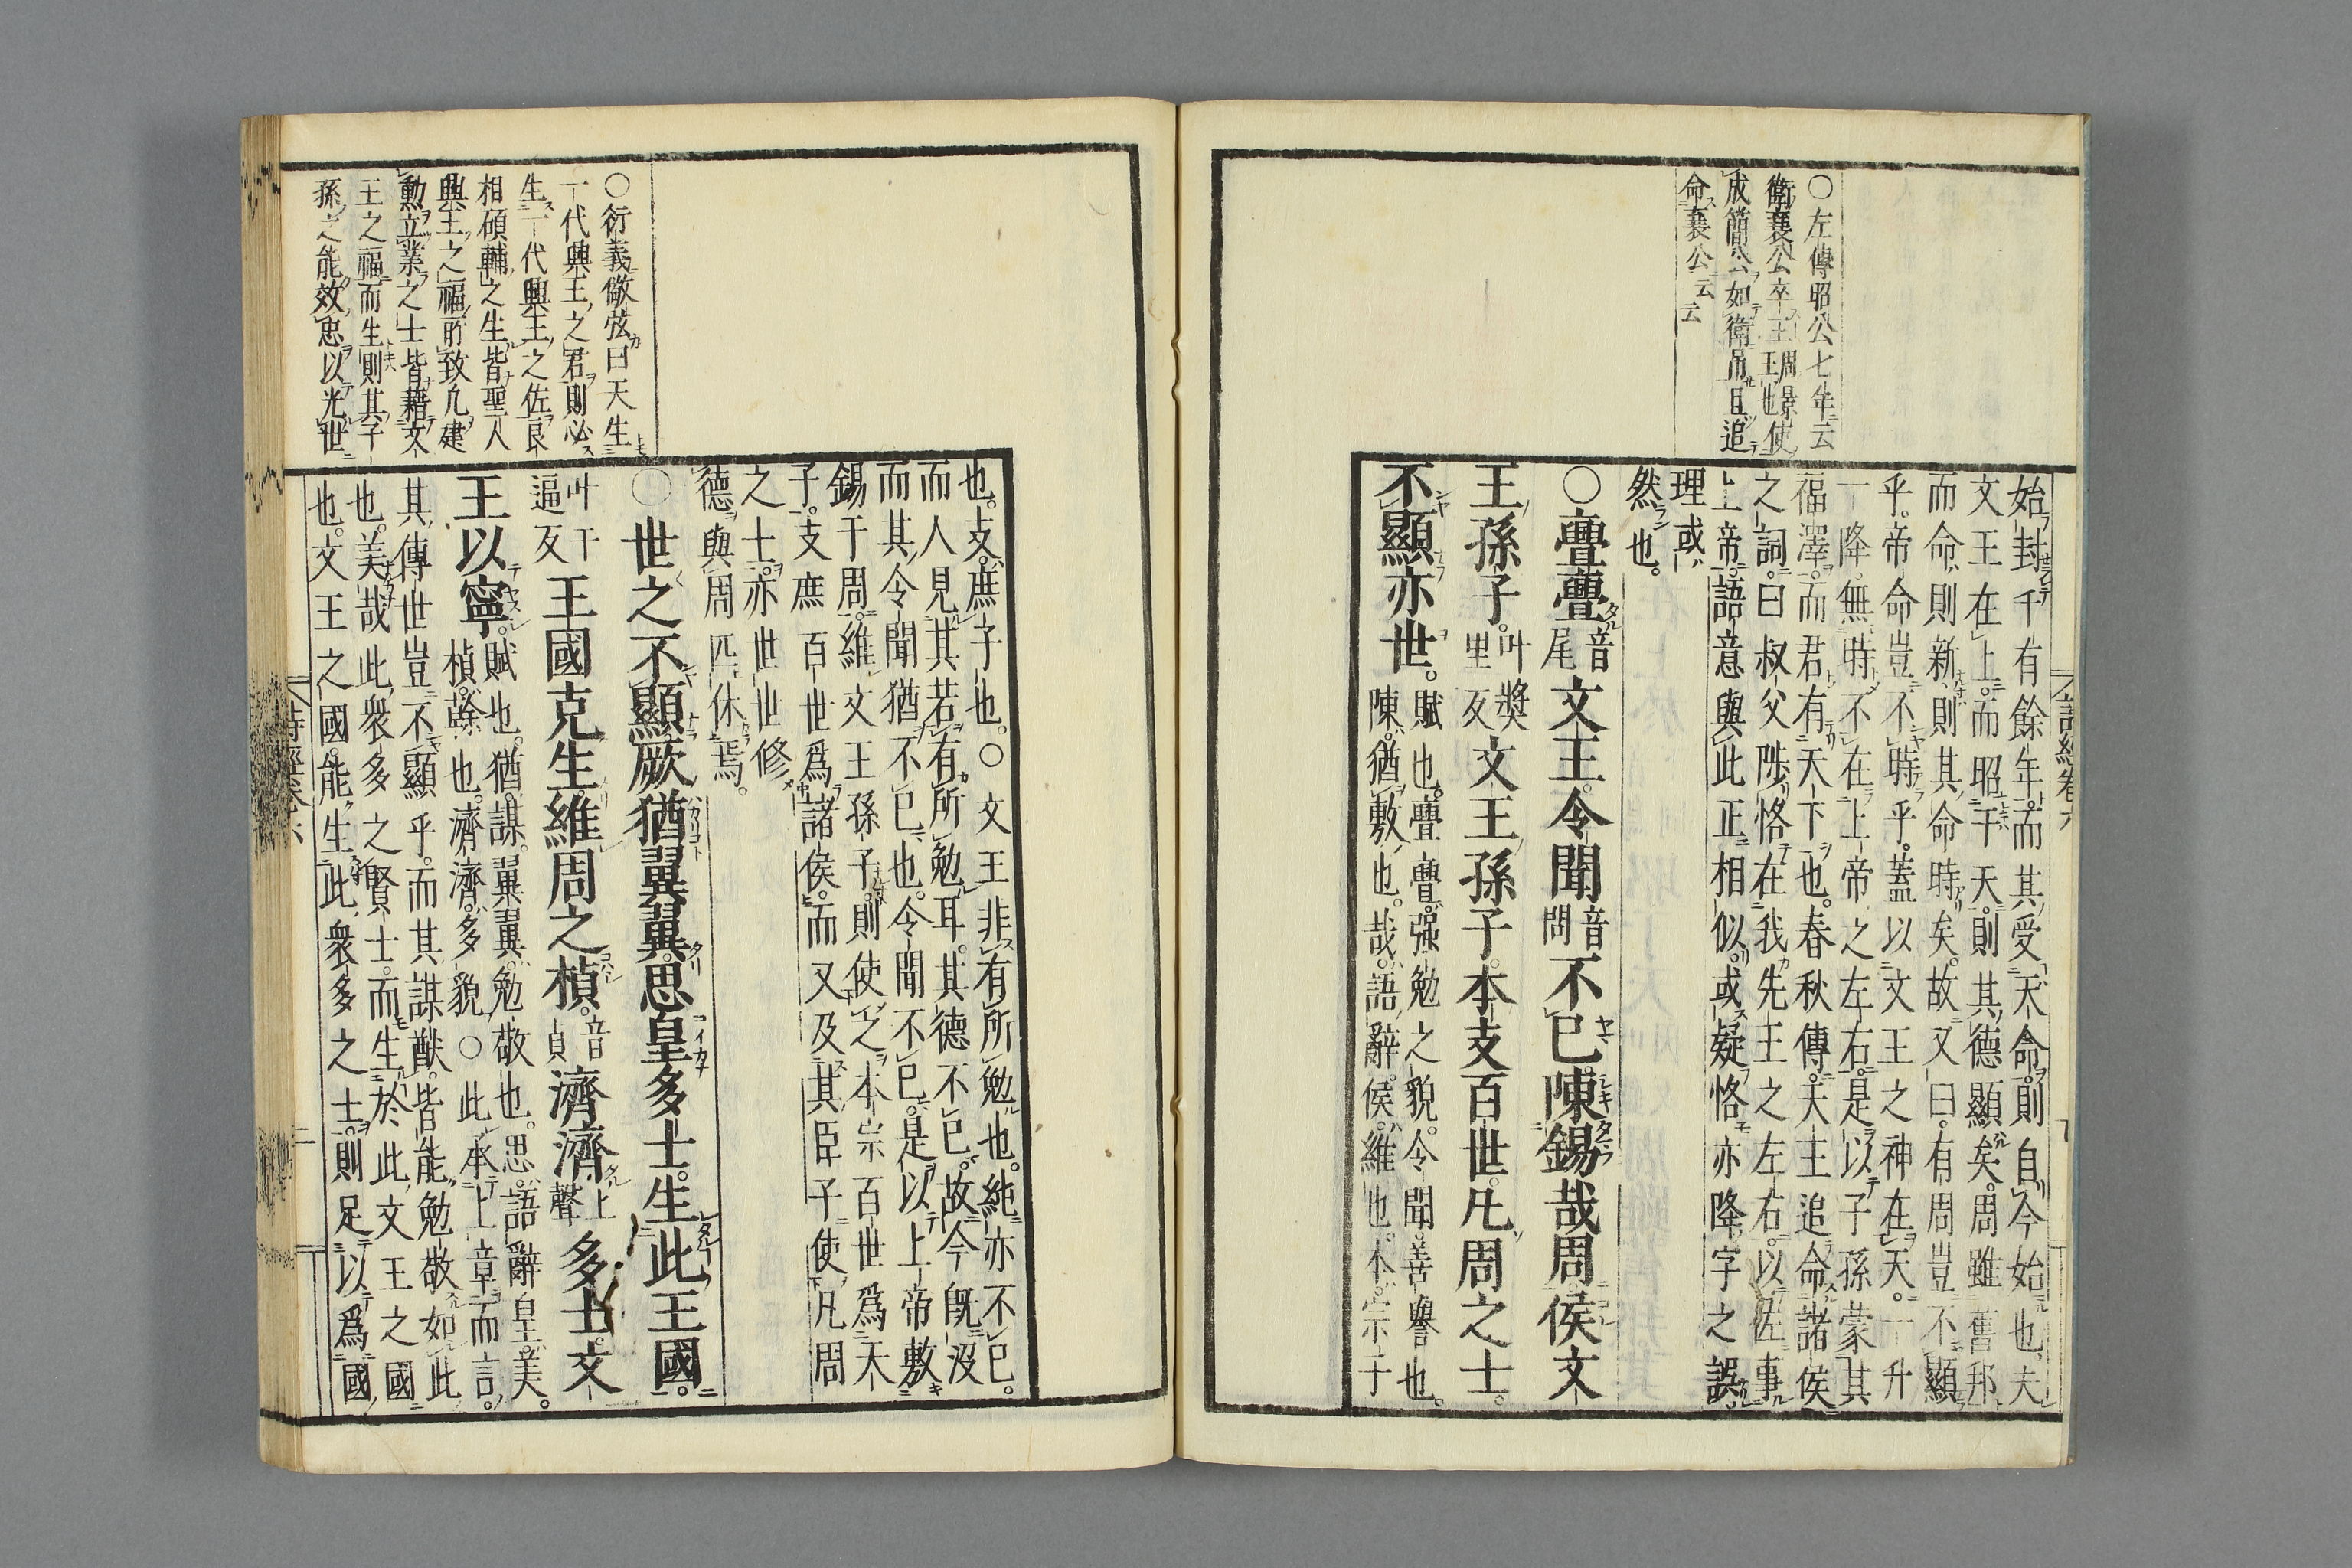 ○左傳昭公七年云
衛襄公卒王周景王也使
成簡公如衛吊且追
命襄公云云
詩經卷六
始封千有餘年而其受天命則自今始也夫
文王在上而昭于天則其德顯矣周雖舊邦
而命則新則其命時矣故又曰有周豈不顯
乎帝命豈不時乎蓋以文王之神在天一升
一降無時不在上帝之左右是以子孫蒙其
福澤而君有天下也春秋傳天王追命諸侯
之詞曰叔父陟恪在我先王之左右以佐事
上帝語意與此正相似或疑恪亦降字之誤
理或
然也
○亹亹音尾文王令聞音問不已陳錫哉周侯文
王孫子叶獎里反文王孫子本支百世凡周之士
不顯亦世賦也亹亹强勉之貌令聞善譽也
陳猶敷也哉語辭侯維也本宗子
也支庶子也○文王非有所勉也純亦不已
而人見其若有所勉耳其德不已故今旣沒
而其令聞猶不已也令聞不已是以上帝敷
錫于周維文王孫子則使之本宗百世爲天
子支庶百世爲諸侯而又及其臣子使凡周
之士亦世世修
德與周匹休焉
○世之不顯厥猶翼翼思皇多士生此王國
叶于逼反王國克生維周之楨音貞濟濟上聲多士文
王以寧賦也猶謀翼翼勉敬也思語辭皇美
楨榦也濟濟多貌○此承上章而言
其傳世豈不顯乎而其謀猷皆能勉敬如此
也美哉此衆多之賢士而生於此文王之國
也文王之國能生此衆多之士則足以爲國
○衍義儆弦曰天生
一代興王之君則必
生一代興王之佐良
相碩輔之生皆聖人
興王之福所致凡建
勳立業之士皆藉文
王之福而生則其子
孫之能效忠以光世
詩經卷六